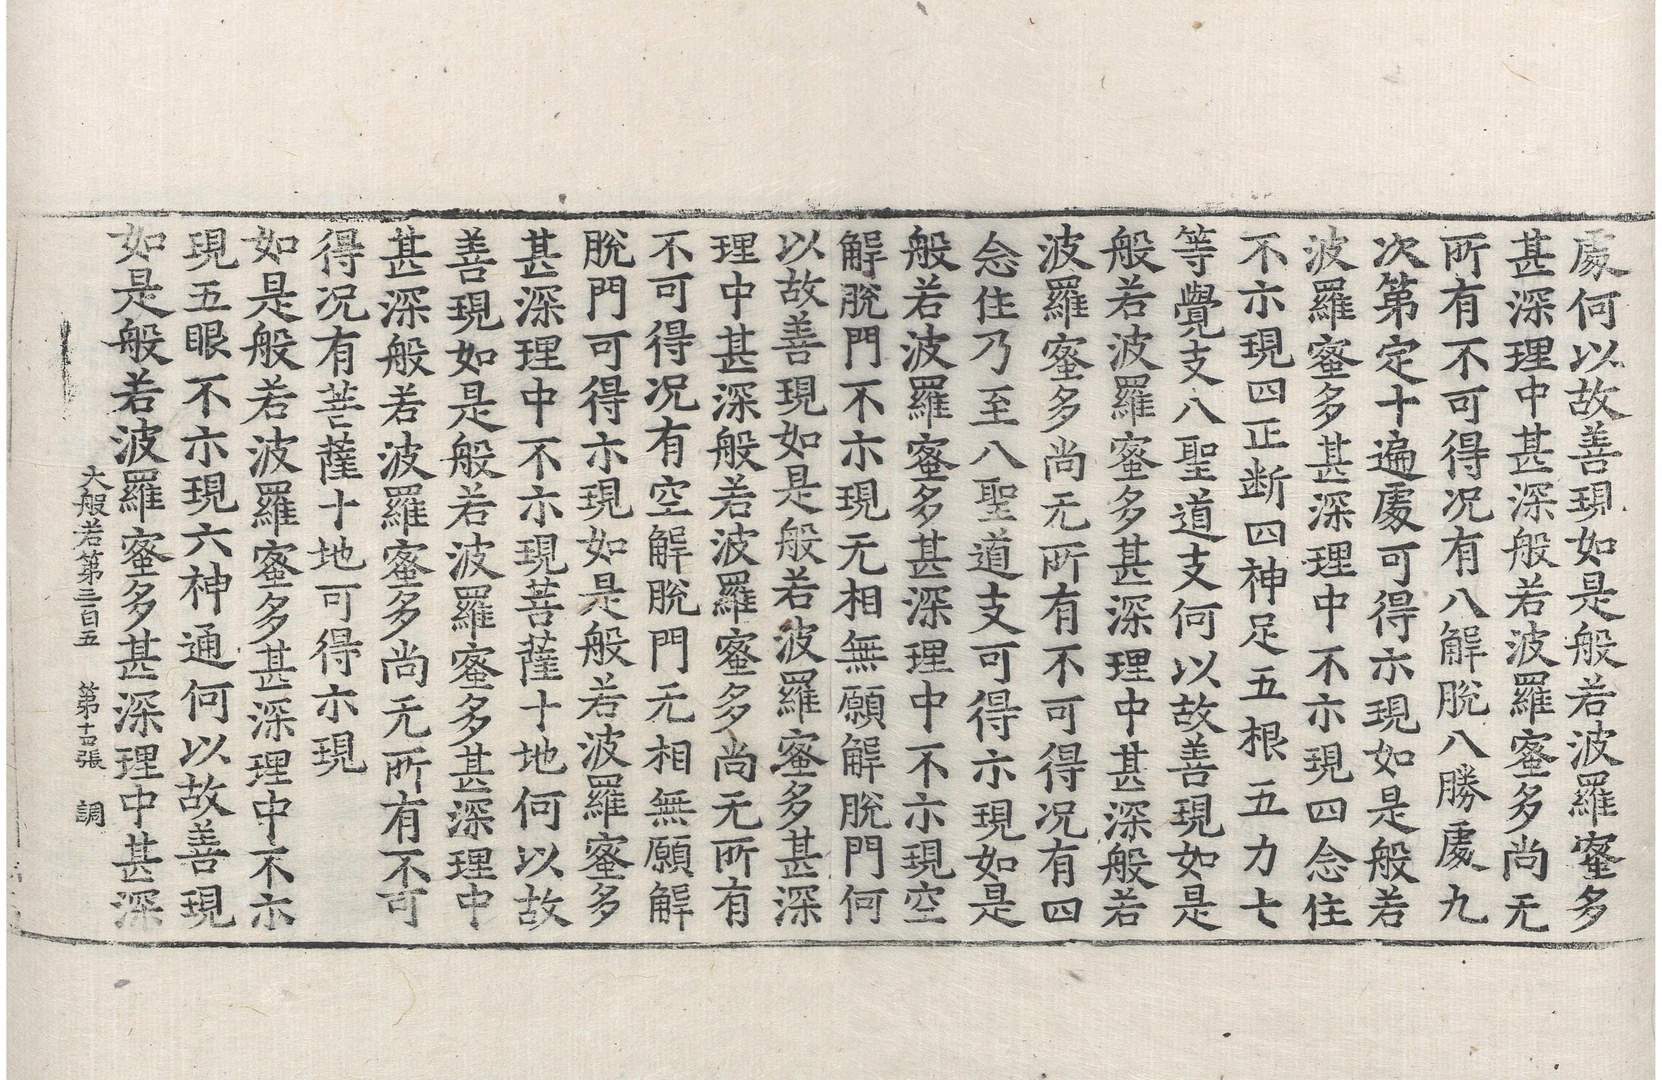 處何以故善現如是般若波羅蜜多
甚深理中甚深般若波羅蜜多尚无
所有不可得况有八解脫八勝處九
次第定十遍處可得示現如是般若
波羅蜜多甚深理中不示現四念住
不示現四正断四神足五根五力七
等覺支八聖道支何以故善現如是
般若波羅蜜多甚深理中甚深般若
波羅蜜多尚无所有不可得况有四
念住乃至八聖道支可得示現如是
般若波羅蜜多甚深理中不示現空
解脫門不示現无相無願解脫門何
以故善現如是般若波羅蜜多甚深
理中甚深般若波羅蜜多尚无所有
不可得况有空解脫門无相無願解
脫門可得示現如是般若波羅蜜多
甚深理中不示現菩薩十地何以故
善現如是般若波羅蜜多甚深理中
甚深般若波羅蜜多尚无所有不可
得况有菩薩十地可得示現
如是般若波羅蜜多甚深理中不示
現五眼不示現六神通何以故善現
如是般若波羅蜜多甚深理中甚深
大般若第三百五 第十四張 調